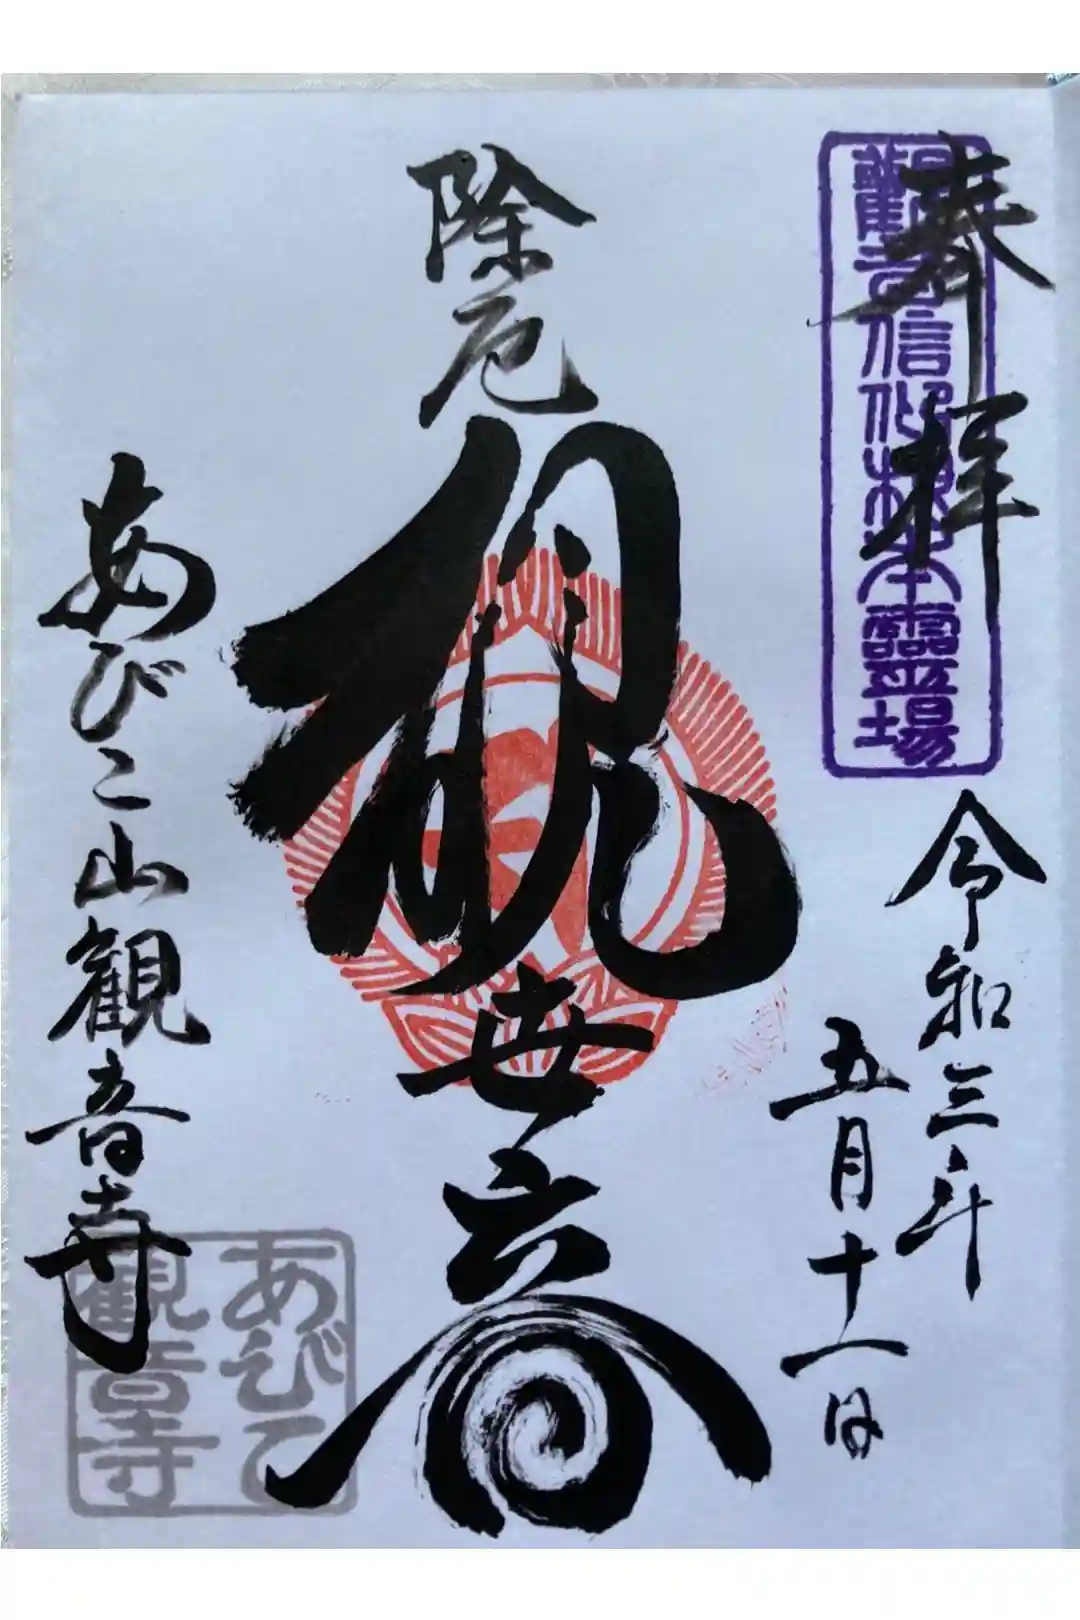 奉拝
最古観音信仰根本霊場
令和三年
五月十一日
除厄
観世音
あびこ山観音寺
あびこ
観音寺